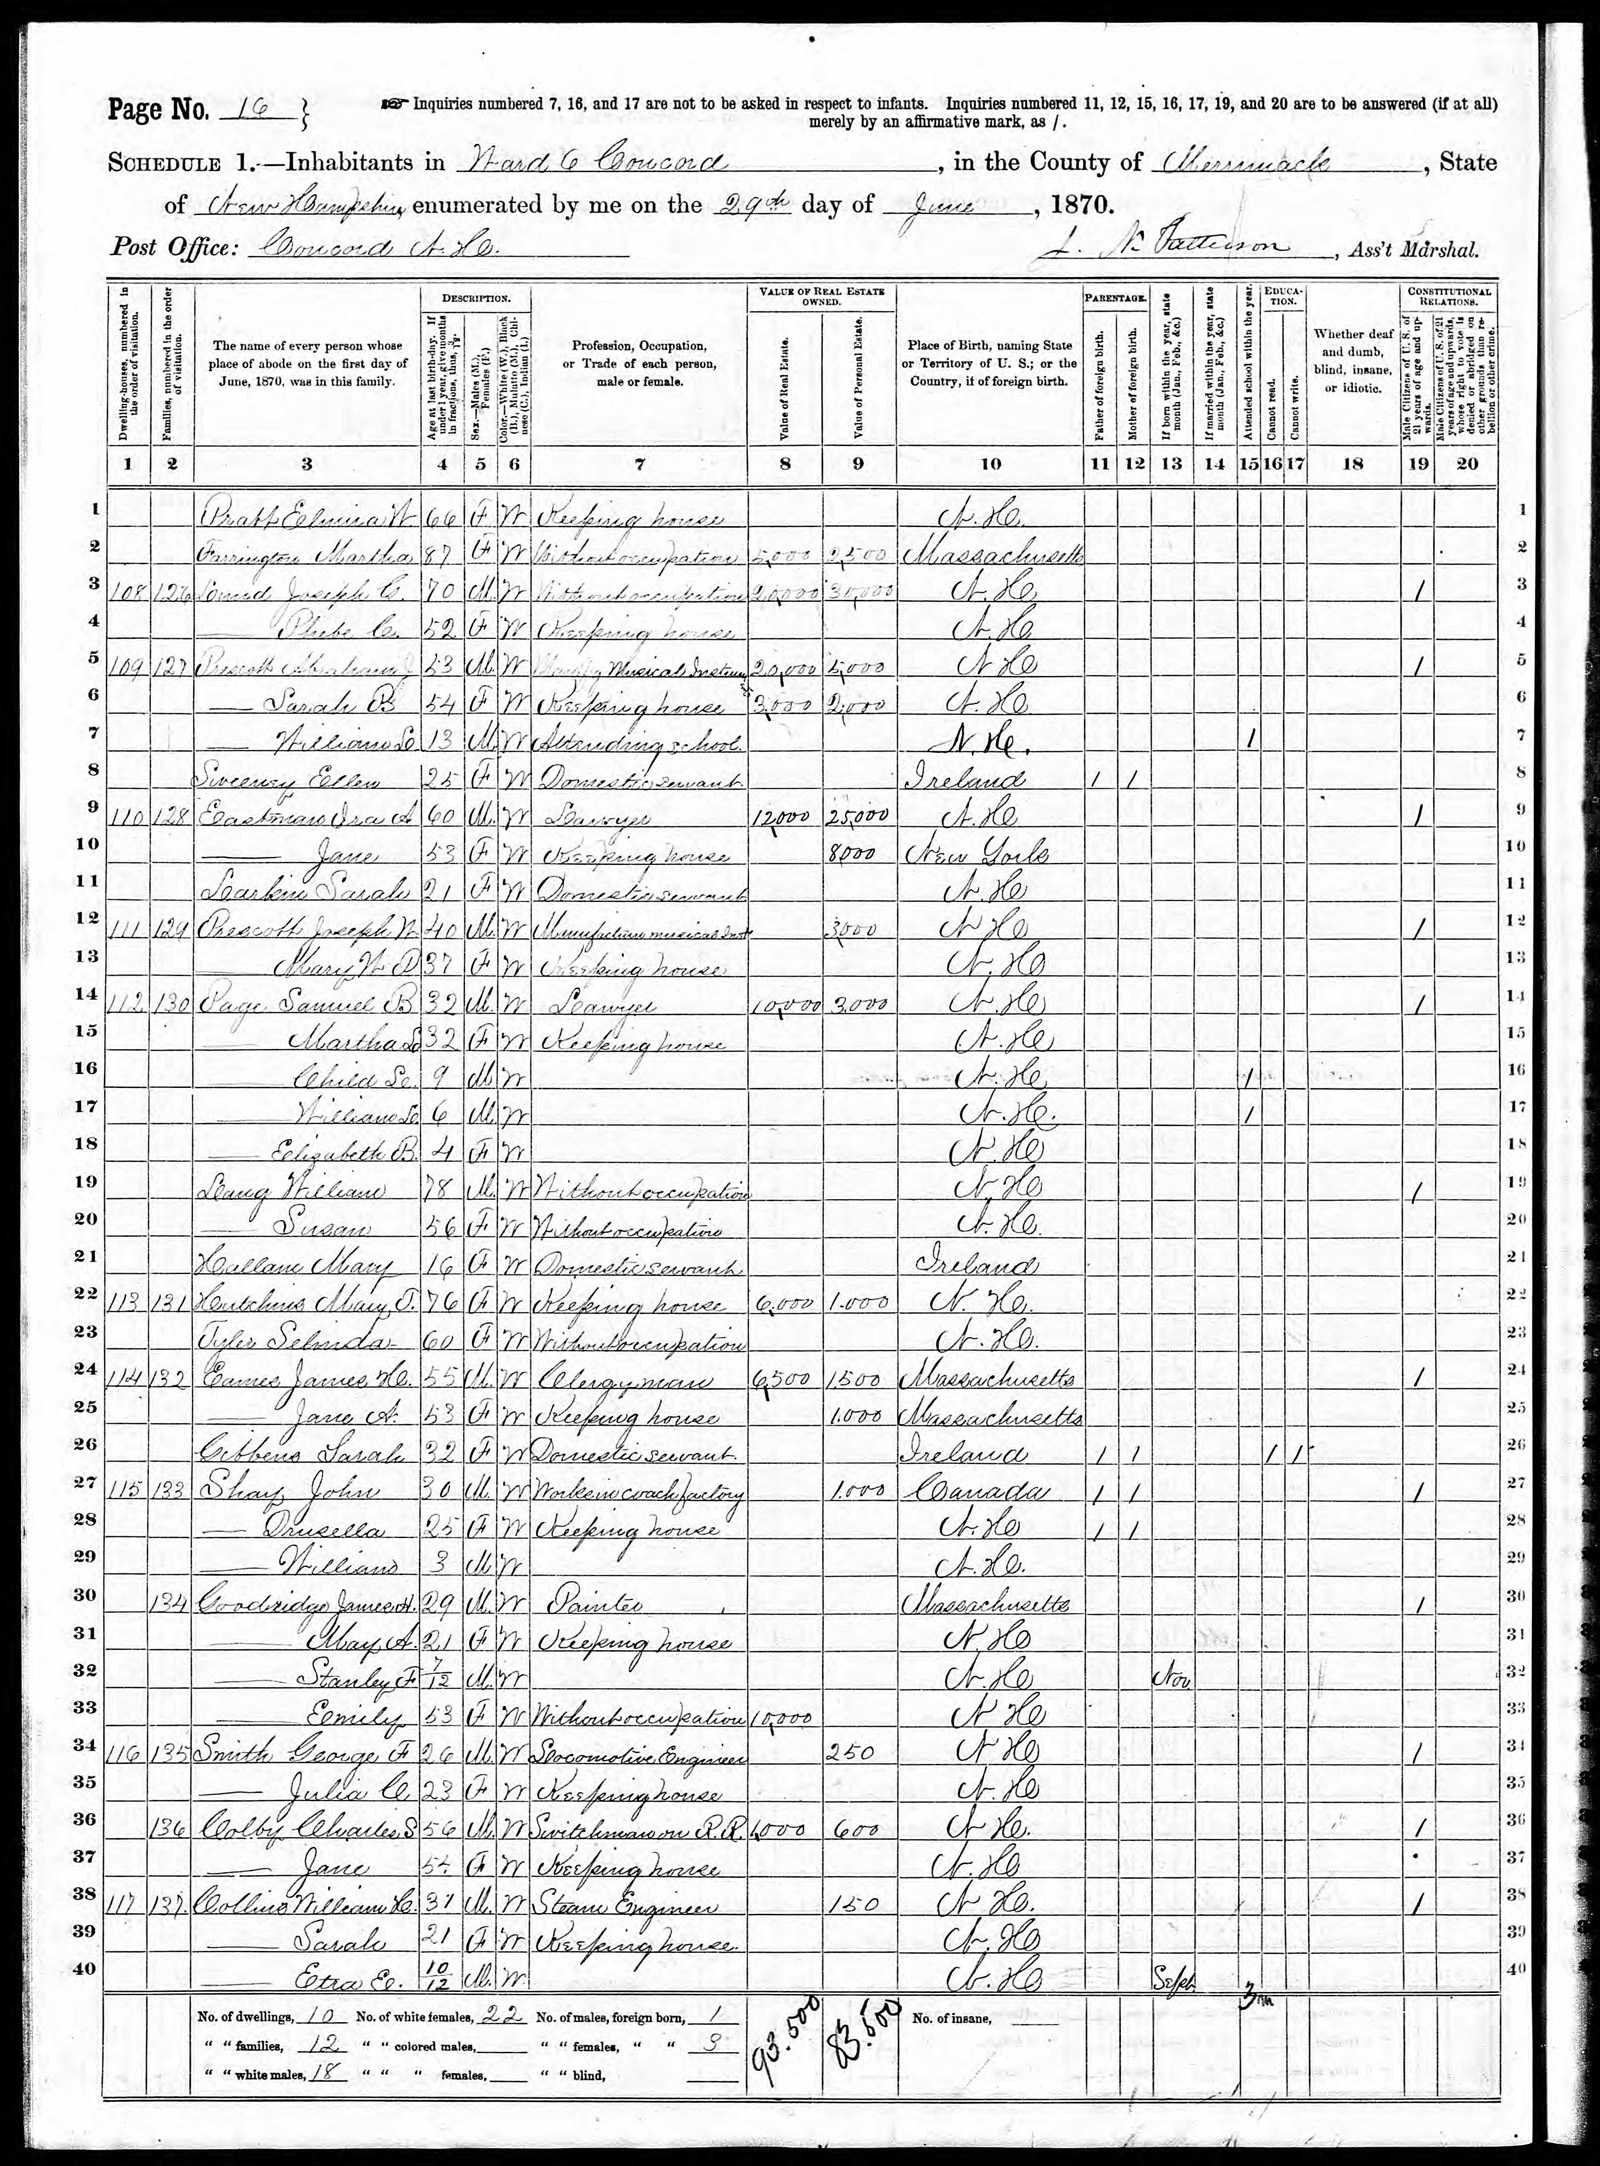 Page No. 16 }
☞ Inquiries numbered 7, 16, and 17 are not to be asked in respect to infants. Inquiries numbered 11, 12, 15, 16, 17, 19, and 20 are to be answered (if at all)
merely by an affirmative mark, as /.
SCHEDULE 1.—Inhabitants in Ward 6 Concord, in the County of Merrimack, State
of New Hampshire, enumerated by me on the 29th day of June, 1870.
Post Office: Concord N. H. N. Patterson, Ass't Marshal.
Dwelling-houses, numbered in the order of visitation.
Families, numbered in the order of visitation.
The name of every person whose place of abode on the first day of June, 1870, was in this family.
DESCRIPTION.
Age at last birth-day. If under 1 year, give months in fractions, thus, 3/12.
Sex.—Males (M.), Females (F.)
Color.—White (W.), Black (B.), Mulatto (M.), Chinese (C.), Indian (I.)
Profession, Occupation, or Trade of each person, male or female.
VALUE OF REAL ESTATE OWNED.
Value of Real Estate.
Value of Personal Estate.
Place of Birth, naming State or Territory of U. S.; or the Country, if of foreign birth.
PARENTAGE.
Father of foreign birth.
Mother of foreign birth.
If born within the year, state month (Jan., Feb., &c.)
If married within the year, state month (Jan., Feb., &c.)
Attended school within the year.
EDUCATION.
Cannot read.
Cannot write.
Whether deaf and dumb, blind, insane, or idiotic.
CONSTITUTIONAL RELATIONS.
Male Citizens of U. S. of 21 years of age and upwards.
Male Citizens of U. S. of 21 years of age and upwards, whose right to vote is denied or abridged on other grounds than rebellion or other crime.
1 2 3 4 5 6 7 8 9 10 11 12 13 14 15 16 17 18 19 20
1 Pratt Elmira W 66 F W Keeping house N. H. 1
2 Farrington Martha 87 F W Without occupation 5,000 2,500 Massachusetts 2
3 108 126 Joseph C. 70 M W Without occupation 20,000 30,000 N. H. / 3
4 — Phebe C. 52 F W Keeping house N. H. 4
5 109 127 Prescott Abraham J 53 M W Musical Instrum 20,000 5,000 N H / 5
6 — Sarah B 54 F W Keeping house 3,000 2,000 N. H. 6
7 — William L 13 M W Attending school N. H. / 7
8 Sweeney Ellen 25 F W Domestic servant Ireland / / 8
9 110 128 Eastman Ira A 60 M W Lawyer 12,000 25,000 N. H. / 9
10 — Jane 53 F W Keeping house 8000 New York 10
11 Larkin Sarah 21 F W Domestic servant N. H. 11
12 111 129 Prescott Joseph W 40 M W Manufacture musical Inst 3,000 N H / 12
13 — Mary W. D 37 F W Keeping house N. H. 13
14 112 130 Page Samuel B 32 M W Lawyer 10,000 3.000 N. H. / 14
15 — Martha L 32 F W Keeping house N. H. 15
16 — Child L. 9 M W N. H. / 16
17 — William L. 6 M W N. H. / 17
18 — Elizabeth B. 4 F W N. H. 18
19 Lang William 78 M W Without occupation N. H. / 19
20 — Susan 56 F W Without occupation N. H. 20
21 Hallam Mary 16 F W Domestic servant Ireland 21
22 113 131 Hutchins Mary T. 76 F W Keeping house 6,000 1.000 N. H. 22
23 Tyler Selinda 60 F W Without occupation N. H. 23
24 114 132 Eames James H. 55 M W Clergyman 6,500 1500 Massachusetts / 24
25 — Jane A. 53 F W Keeping house 1.000 Massachusetts 25
26 Gibbens Sarah 32 F W Domestic servant Ireland / / / / 26
27 115 133 Shay John 30 M. W Works in coach factory 1.000 Canada / / / 27
28 — Drusella 25 F W Keeping house N. H. / / 28
29 — William 3 M W N. H. 29
30 134 Goodridge James H. 29 M. W Painter Massachusetts / 30
31 — Mary A. 21 F W Keeping house N. H. 31
32 — Stanley F 7/12 M. W N. H. Nov 32
33 — Emily 53 F W Without occupation 10,000 N H 33
34 116 135 Smith George F 26 M. W Locomotive Engineer 250 N H / 34
35 — Julia C 23 F W Keeping house N. H. 35
36 136 Colby Charles S 56 M. W Switchman on R. R. 1,000 600 N H. / 36
37 — Jane 54 F W Keeping house N. H. 37
38 117 137. Collins William H. 31 M. W Steam Engineer 150 N H. / 38
39 — Sarah 21 F W Keeping house. N. H. 39
40 — Etra E. 10/12 M. W. N. H. Sept. 40
3m
No. of dwellings, 10 No. of white females, 22 No. of males, foreign born, 1 93.500 83.500 No. of insane,
" " families, 12 " " colored males, " " females, " " 3
" " white males, 18 " " " females, " " blind,